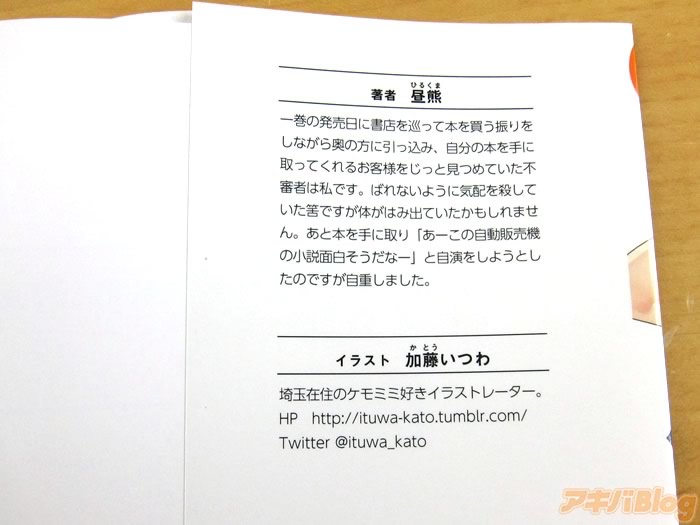 ひるくま
著者 昼熊
一巻の発売日に書店を巡って本を買う振りを
しながら奥の方に引っ込み、自分の本を手に
取ってくれるお客様をじっと見つめていた不
審者は私です。ばれないように気配を殺して
いた筈ですが体がはみ出ていたかもしれませ
ん。あと本を手に取り「あーこの自動販売機
の小説面白そうだなー」と自演をしようとし
たのですが自重しました。
かとう
イラスト 加藤いつわ
埼玉在住のケモミミ好きイラストレーター。
HP http://ituwa-kato.tumblr.com/
Twitter @ituwa_kato
アキバBlog